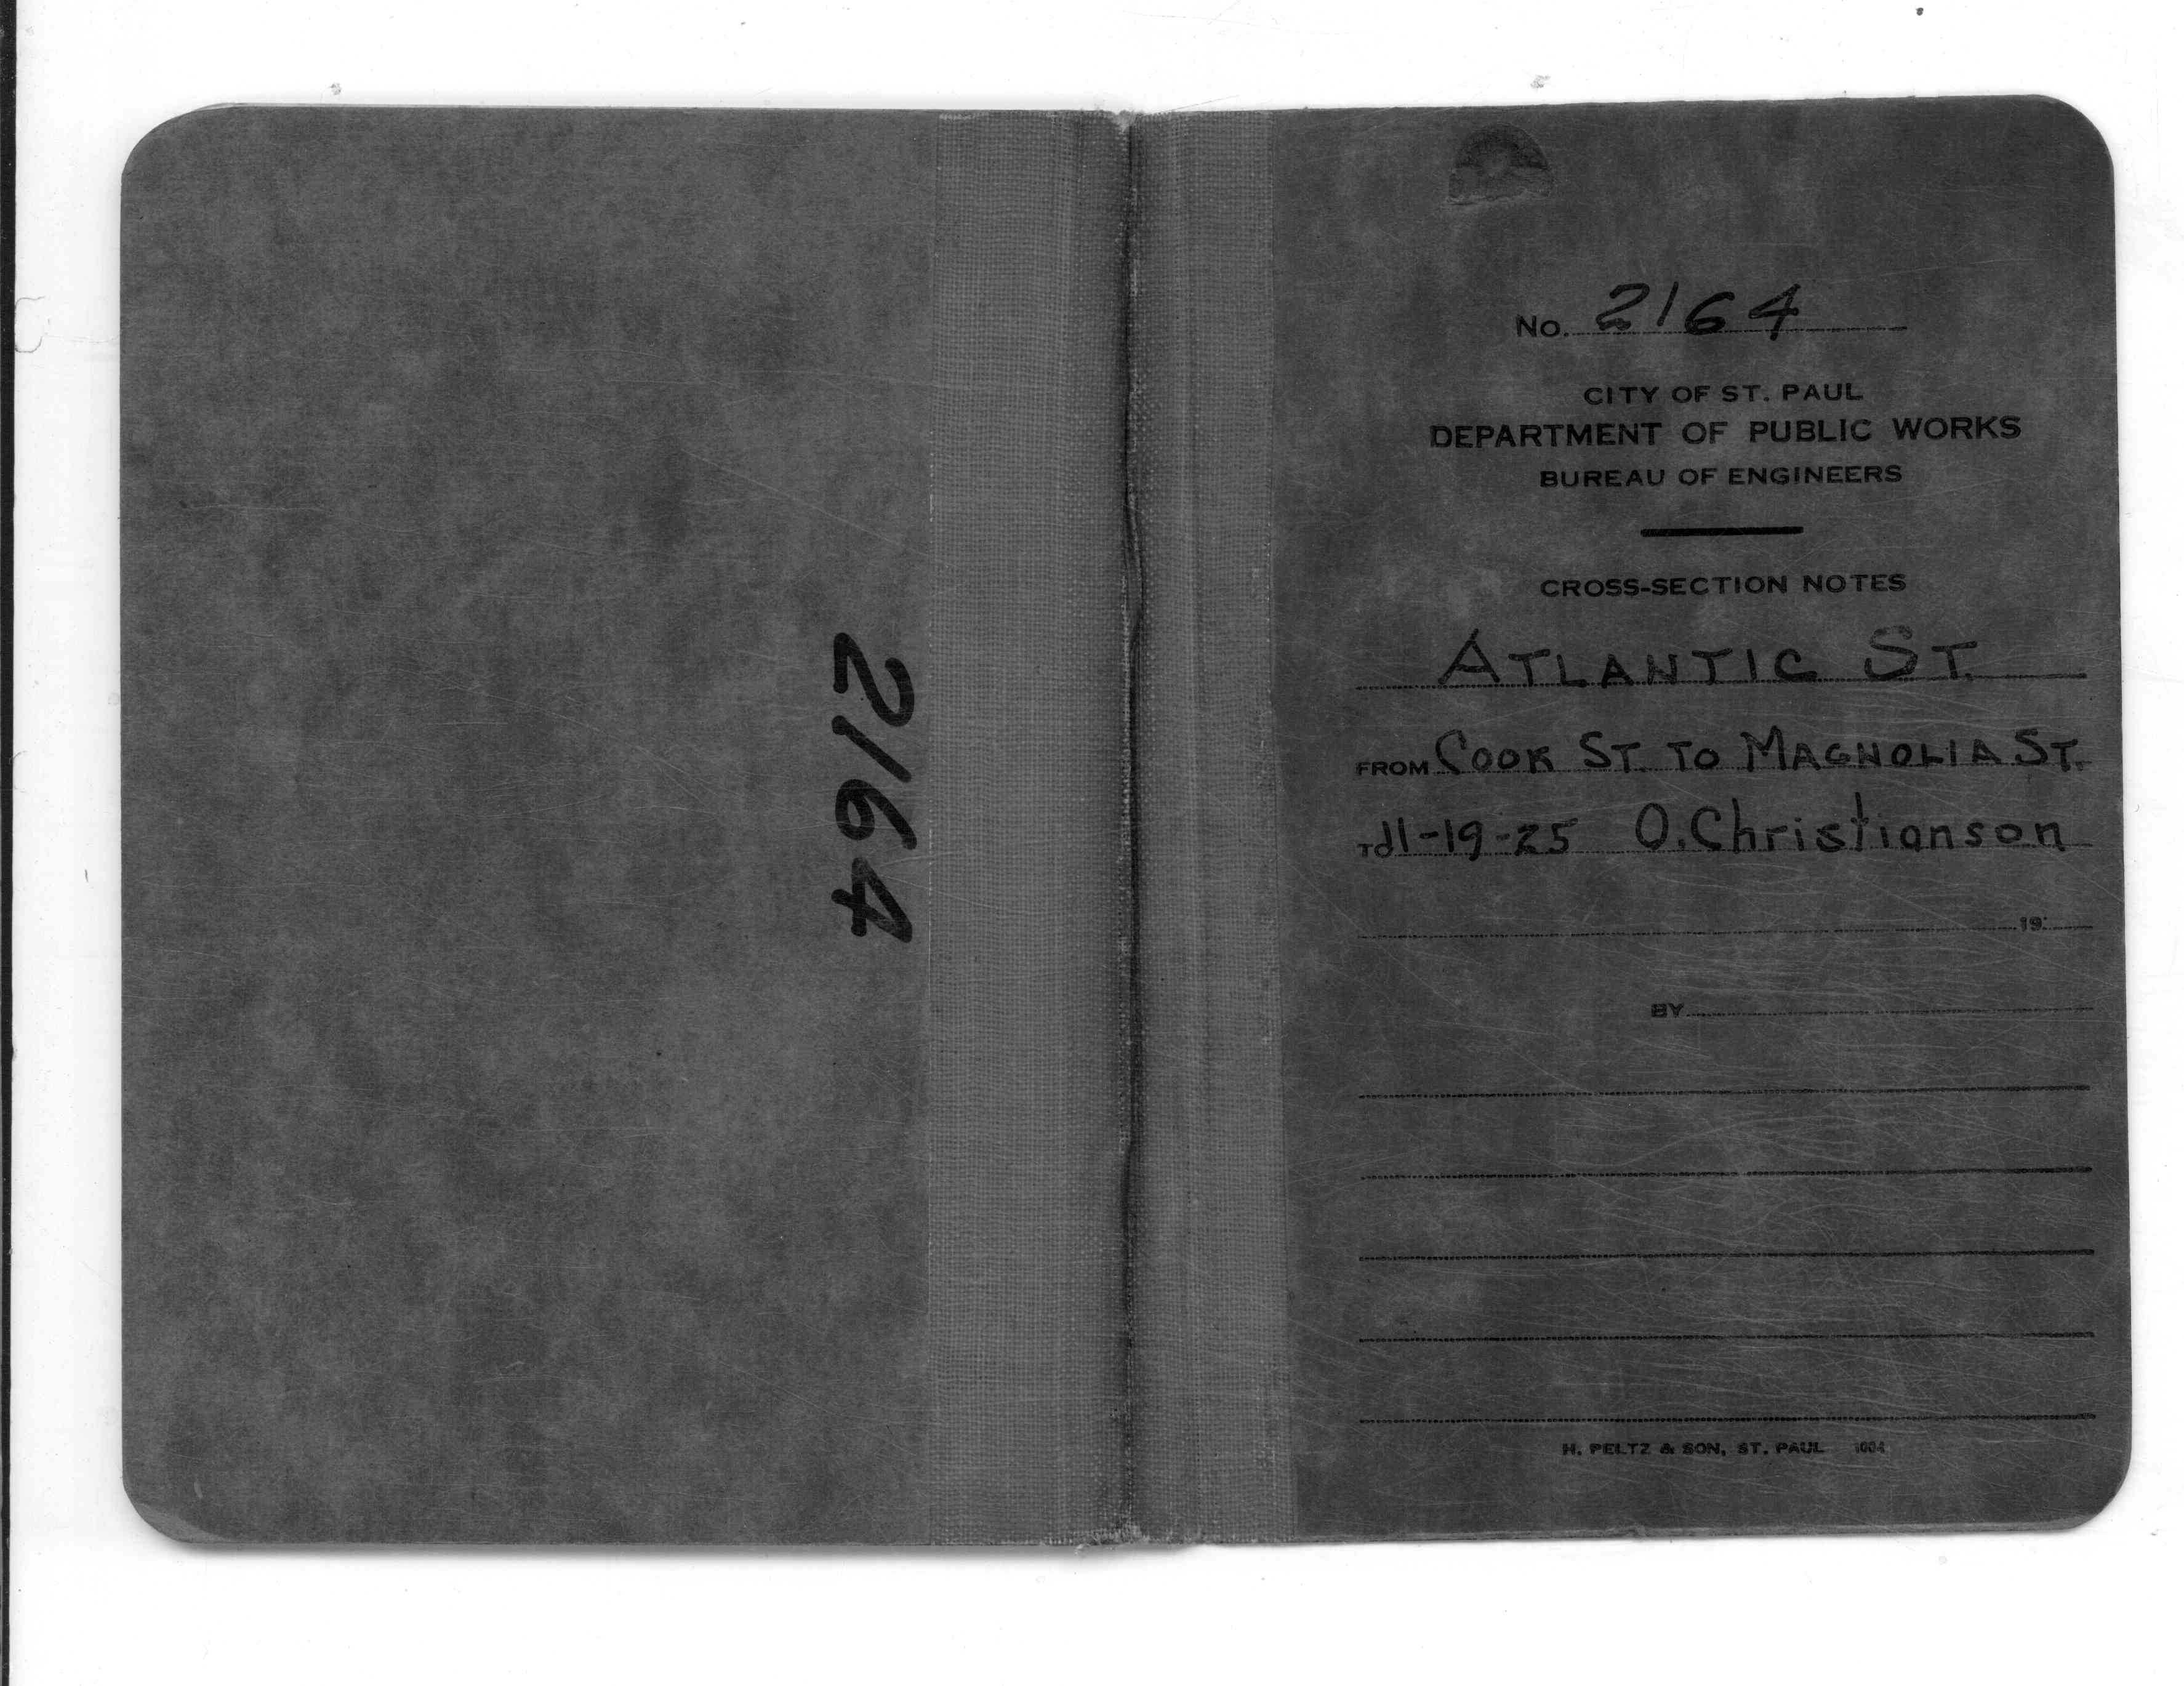 2164
No. 2164
CITY OF ST. PAUL
DEPARTMENT OF PUBLIC WORKS
BUREAU OF ENGINEERS
CROSS-SECTION NOTES
ATLANTIC ST.
FROM COOK ST. TO MAGNOLIA ST.
TO 11-19-25 O. Christianson
19
BY
H. PELTZ & SON, ST. PAUL